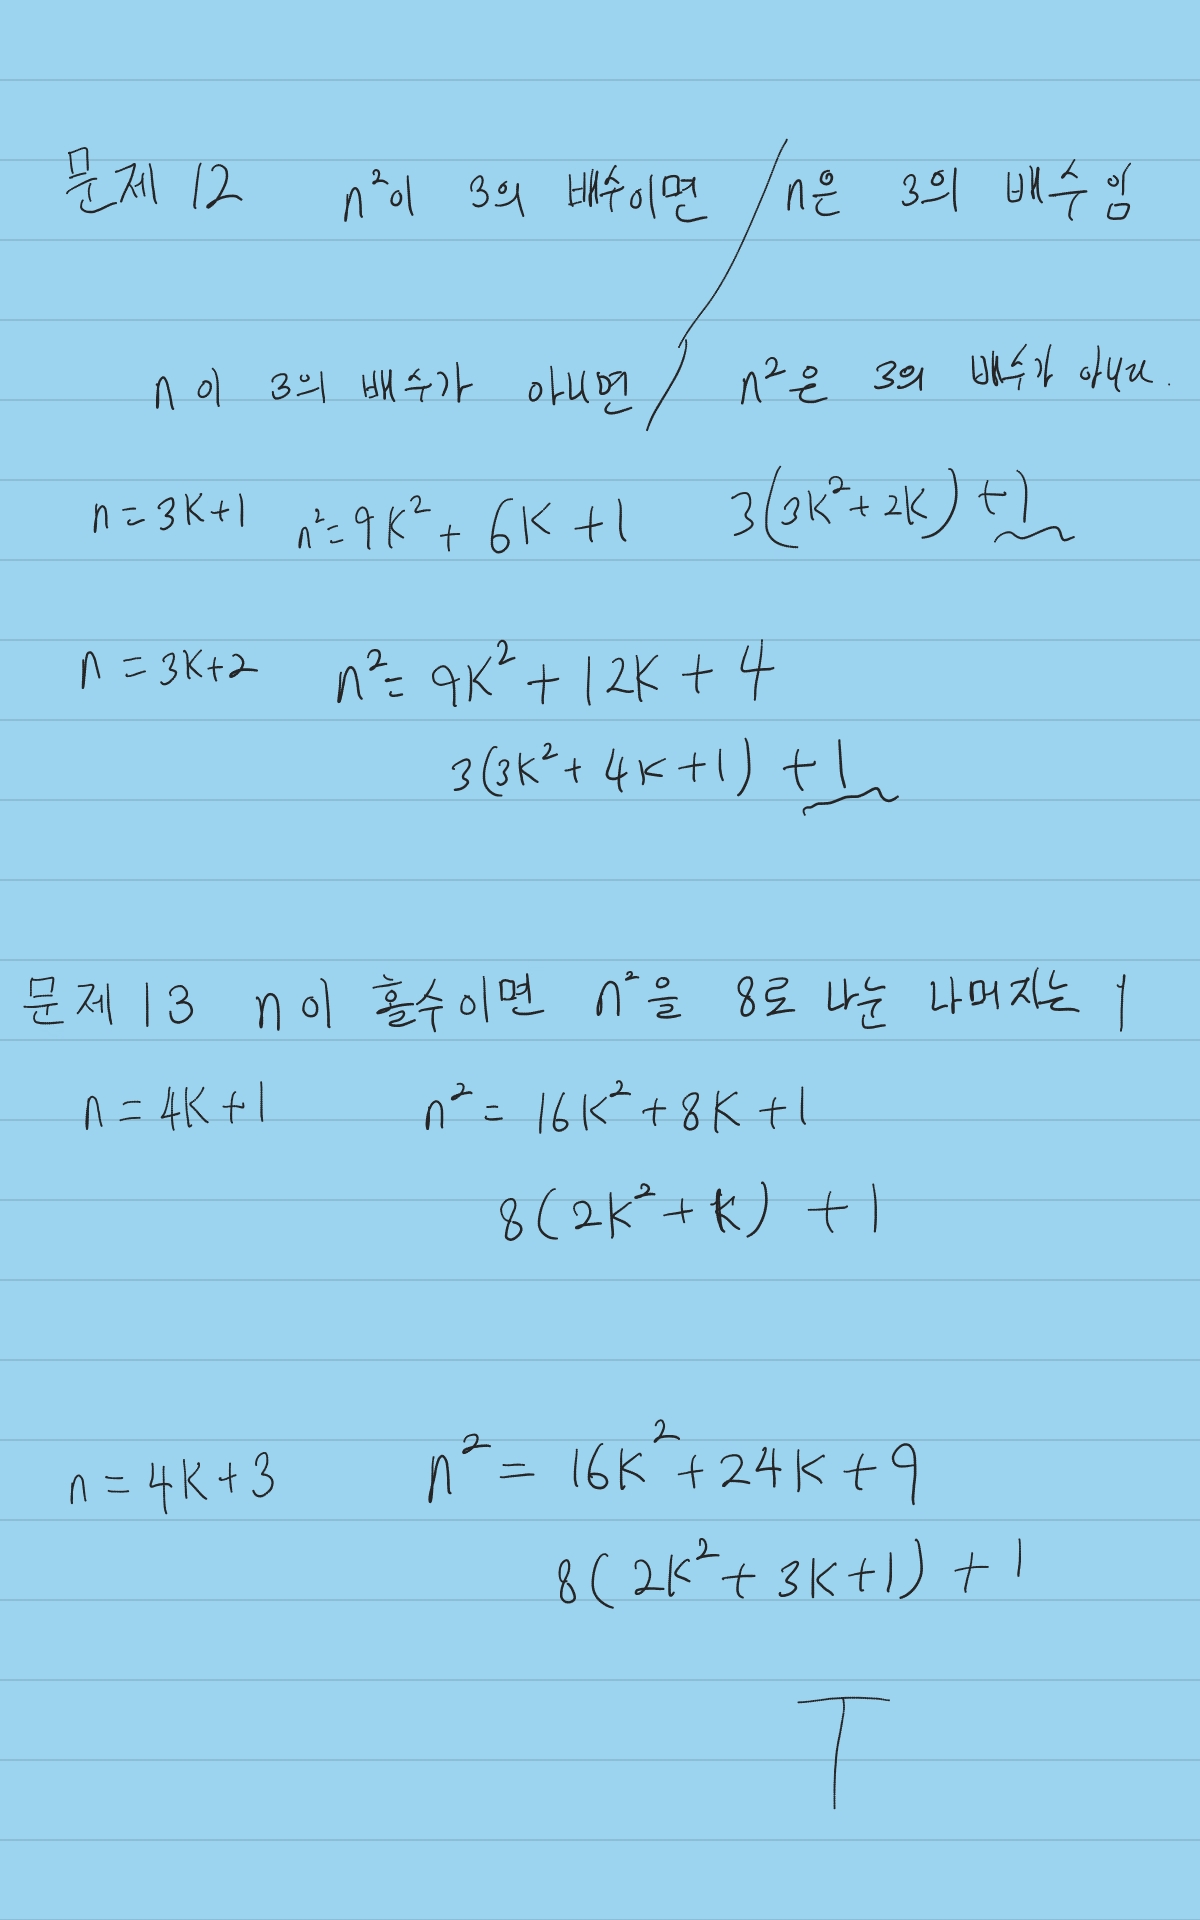 문제 12 n²이 3의 배수이면 / n은 3의 배수임
n이 3의 배수가 아니면 / n²은 3의 배수가 아니다.
n=3K+1 n²=9K²+6K+1 3(3K²+2K)+1
n=3K+2 n²=9K²+12K+4
3(3K²+4K+1)+1
문제 13 n이 홀수이면 n²을 8로 나눈 나머지는 1
n=4K+1 n²=16K²+8K+1
8(2K²+K)+1
n=4K+3 n²=16K²+24K+9
8(2K²+3K+1)+1
T